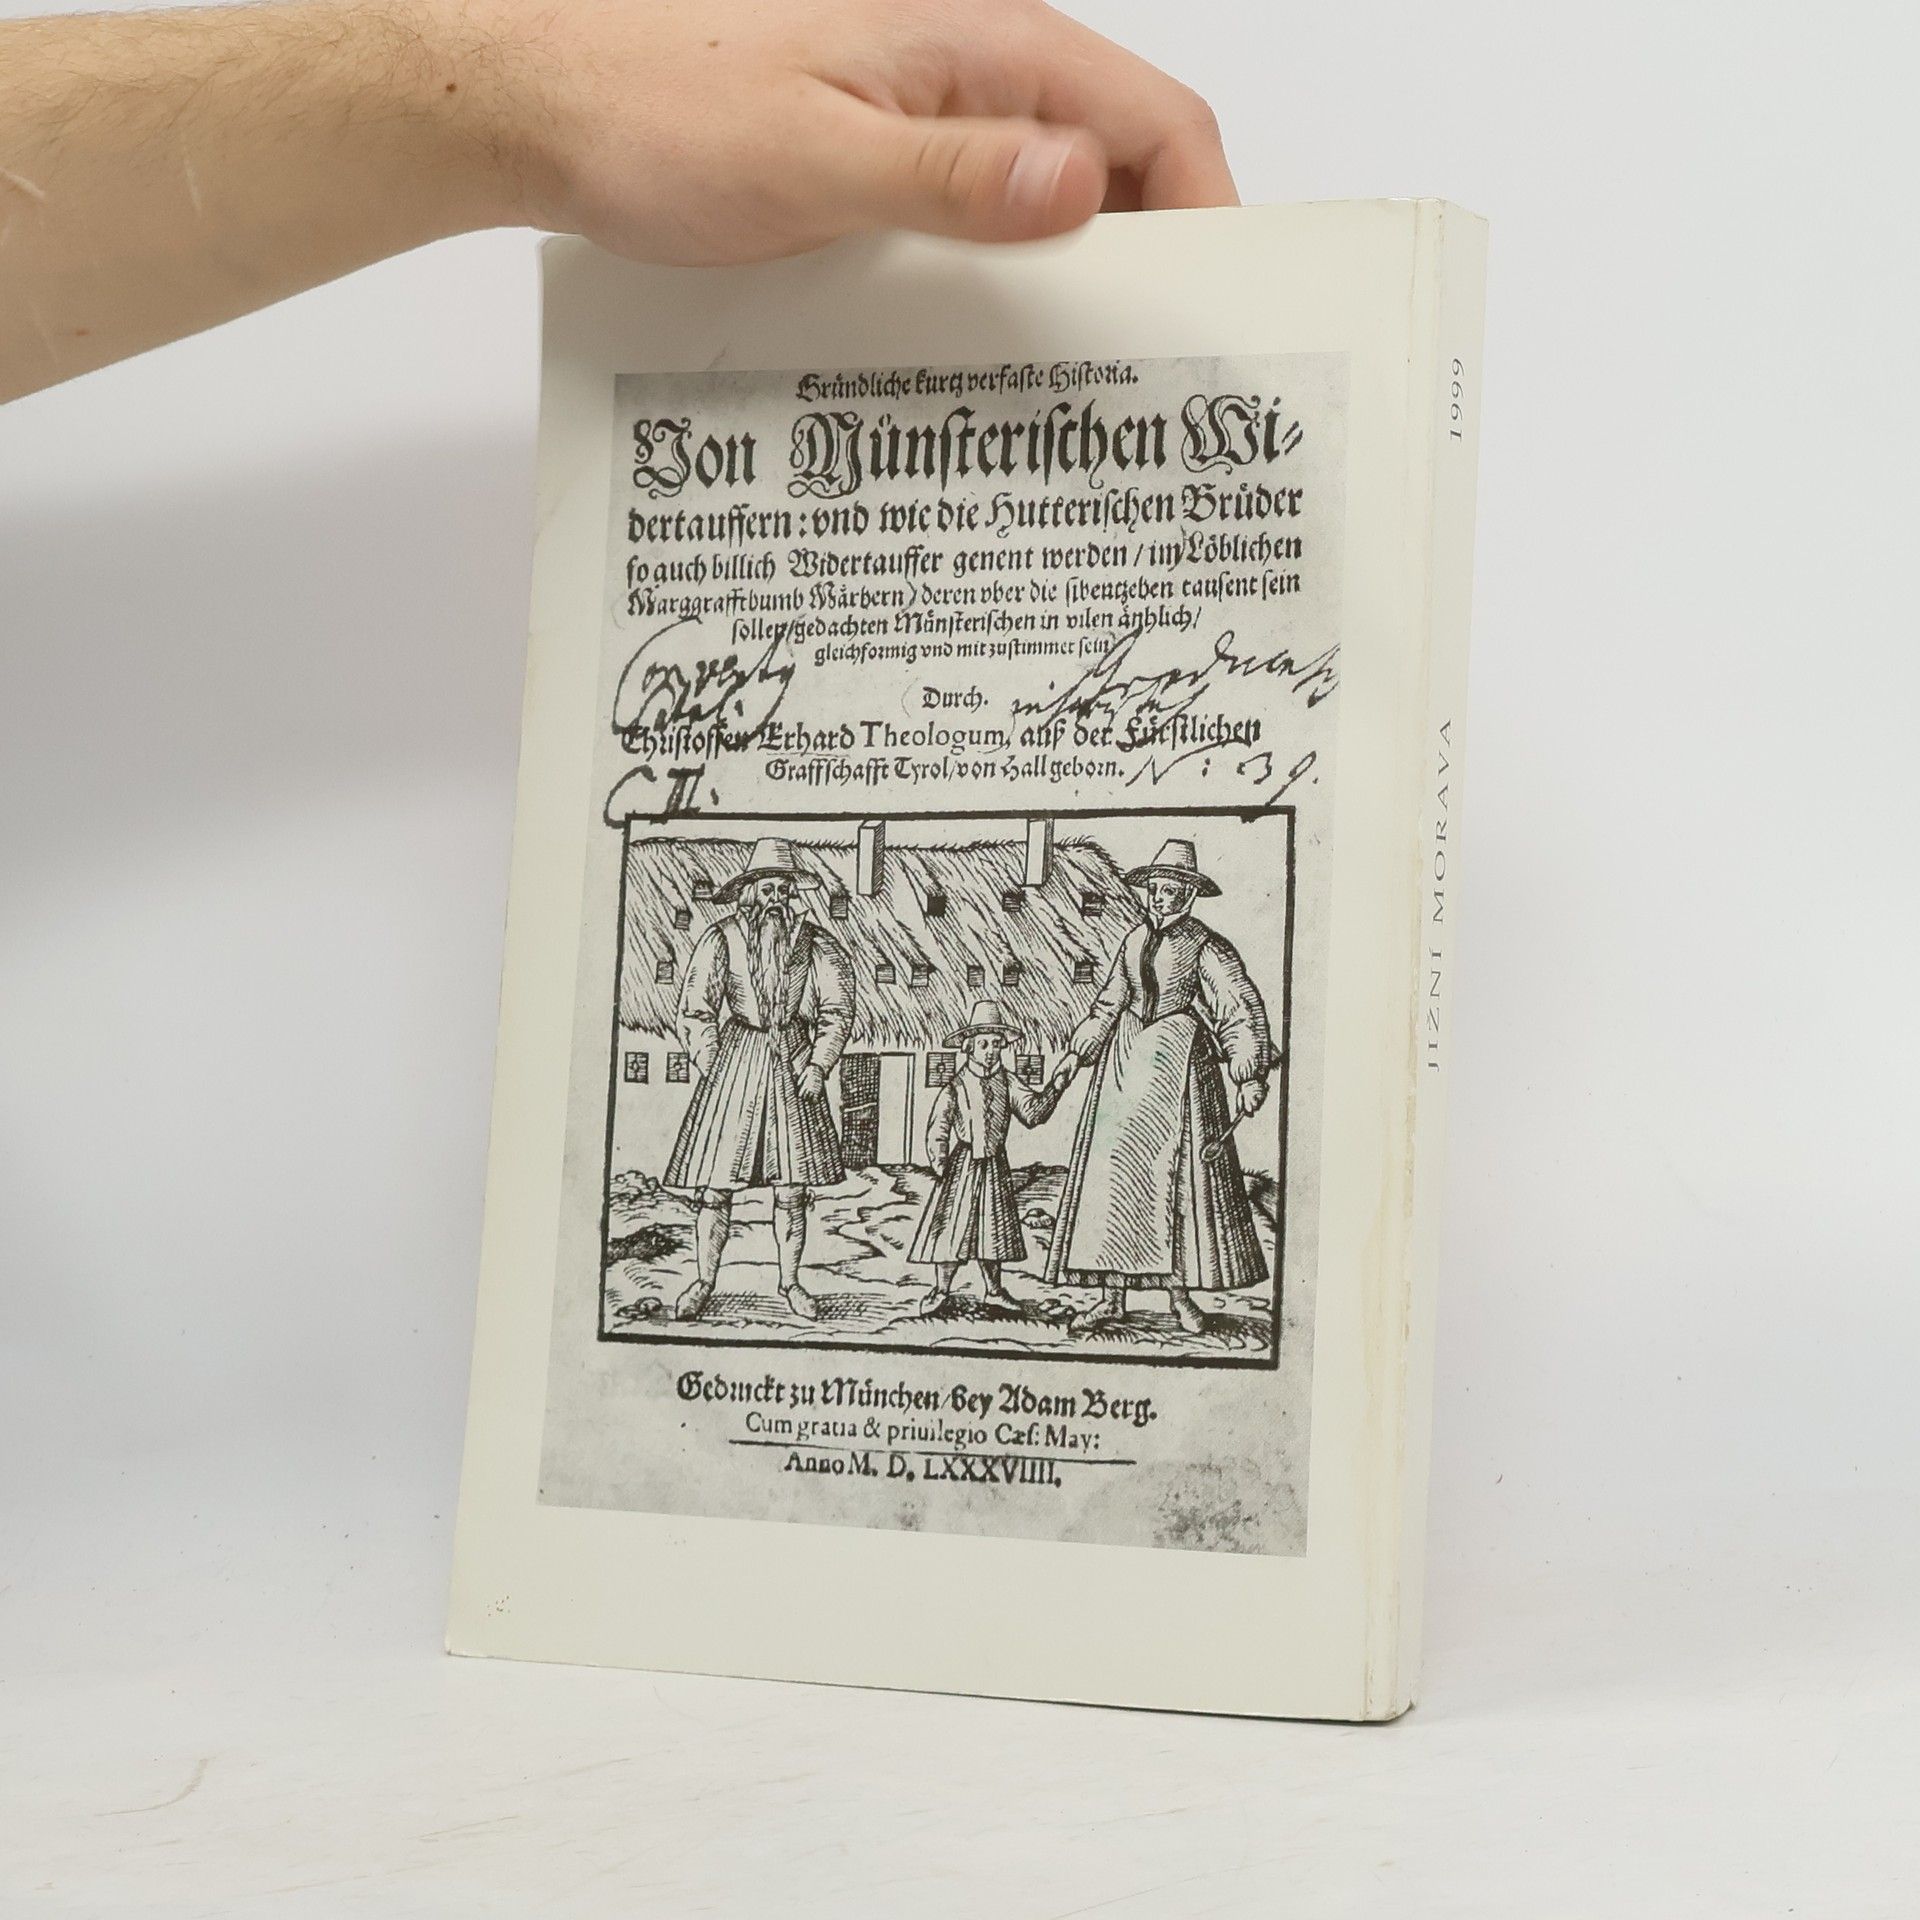 Gründliche kurtz verfaste Historia.
Von Münsterischen Wi-
dertauffern: vnd wie die Hutterischen Brüder
so auch billich Widertauffer genent werden / im Löblichen
Marggraffthumb Märhern) deren vber die sibentzehen tausent sein
sollen / gedachten Münsterischen in vilen änhlich /
gleichformig vnd mit zustimmet sein
Durch.
Christoffen Erhard Theologum, auß der Fürstlichen
Graffschafft Tyrol / von Hall geborn.
C II. N: 39.
Gedruckt zu München / bey Adam Berg.
Cum gratia & priuilegio Cæs: May:
Anno M. D. LXXXVIIII.
JIŽNÍ MORAVA 1999